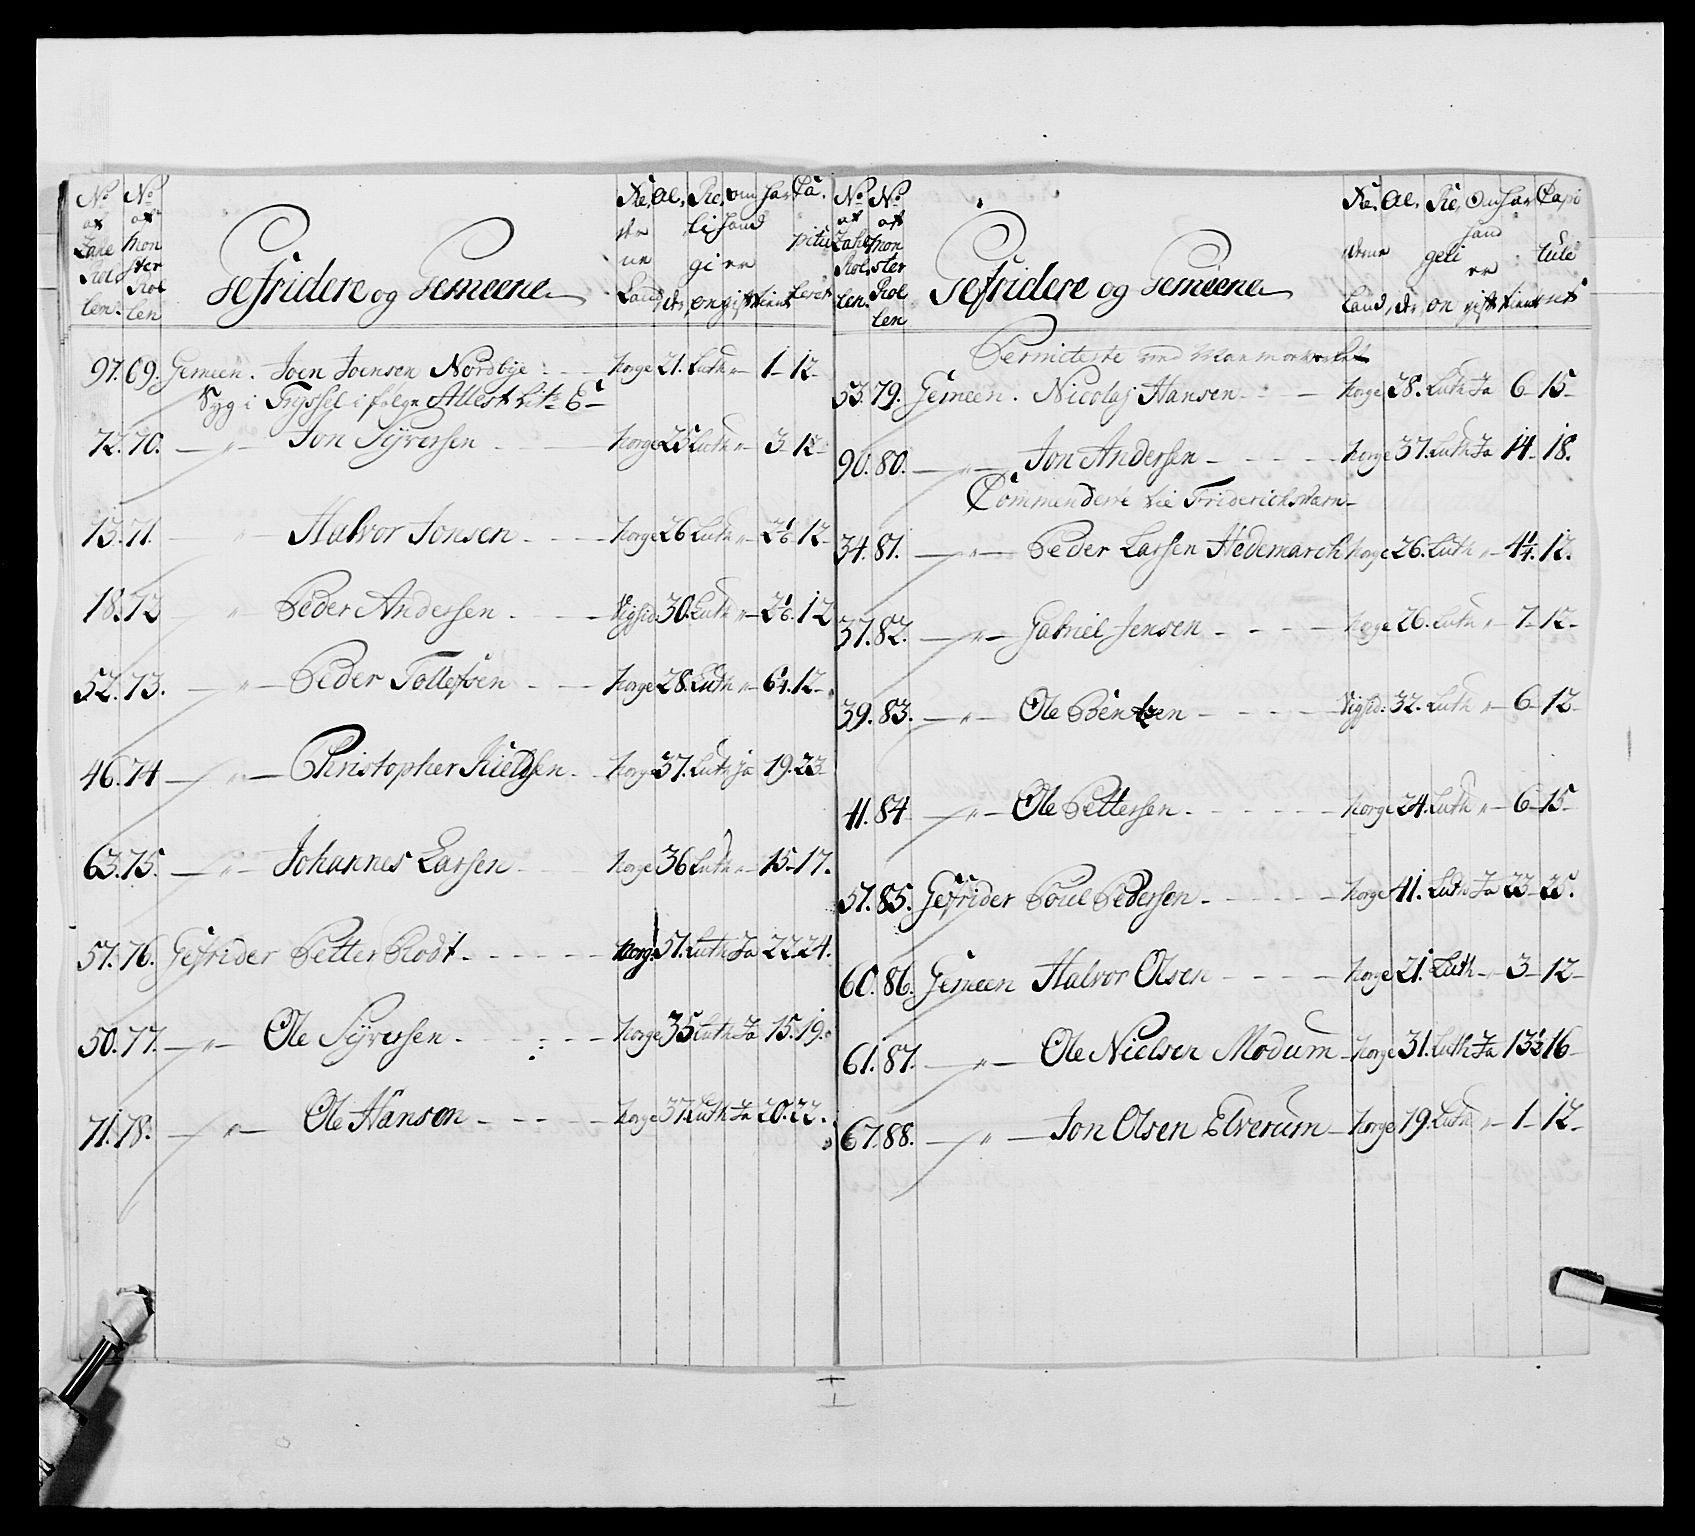 No af Zahl Rollen. No af Mon ster Rol len Gefridere og Gemeene Fæ, derne Land Al, der, Re, ligi on om Hand er gift Har tient Ca, pitu leret
97. 69. Gemeen. Joen Joensen Nordbye Norge 21. Luth " 1 12
Syg i Tryssel i følge Attest Litr: E
72. 70. " Jon Syversen Norge 25 Luth " 3 12
13. 71. " Halvor Jonsen Norge 26 Luth " 12
18. 72 " Peder Andersen Vigsid. 30. Luth " 12
52. 73. " Peder Tollefsen Norge 28. Luth " 12
46. 74 " Christopher Kieldsen Norge 37. Luth ja 19. 23
63. 75. " Johannes Larsen Norge 36 Luth " 15 17.
57. 76. Gefrider Petter Rodt Norg. 51. Luth Ja 22 24.
50. 77. " Ole Syversen Norge 35 Luth Ja 15. 19.
71. 78. " Ole Hansen Norge 37. Luth Ja 20. 22.
No af Zahl Rol, len. No af Mon ster Rol len Gefridere og Gemeene Fæ, derne Land, Al, der, Re, geli on Om Hand er gift Har tient Capi tule ret
Permiterte med
53. 79. Gemeen. Nicolaj Hansen Norge 38. Luth Ja 6 15
90. 80. " Jon Andersen Norge 37. Luth Ja 14 18.
Commendert ved Friderichsværn
34. 81. " Peder Larsen Hedemarch Norge 26. Luth " 4 1/4. 12.
37. 82. " Gabriel Jensen Norge 26. Luth " 7 12
39. 83. " Ole Bentzen Vigsid. 32. Luth " 6 12
41. 84 " Ole Pettersen Norge 24. Luth " 6 15
57. 85. Gefrider Poul Pedersen Norge 41. Luth Ja 23 25.
60. 86. Gemeen Halvor Olsen Norge 21. Luth " 3 12
61. 87. " Ole Nielsen Modum Norge 31. Luth Ja 13 1/2 16
67. 88. " Jon Olsen Elverum Norge 19. Luth " 1 12